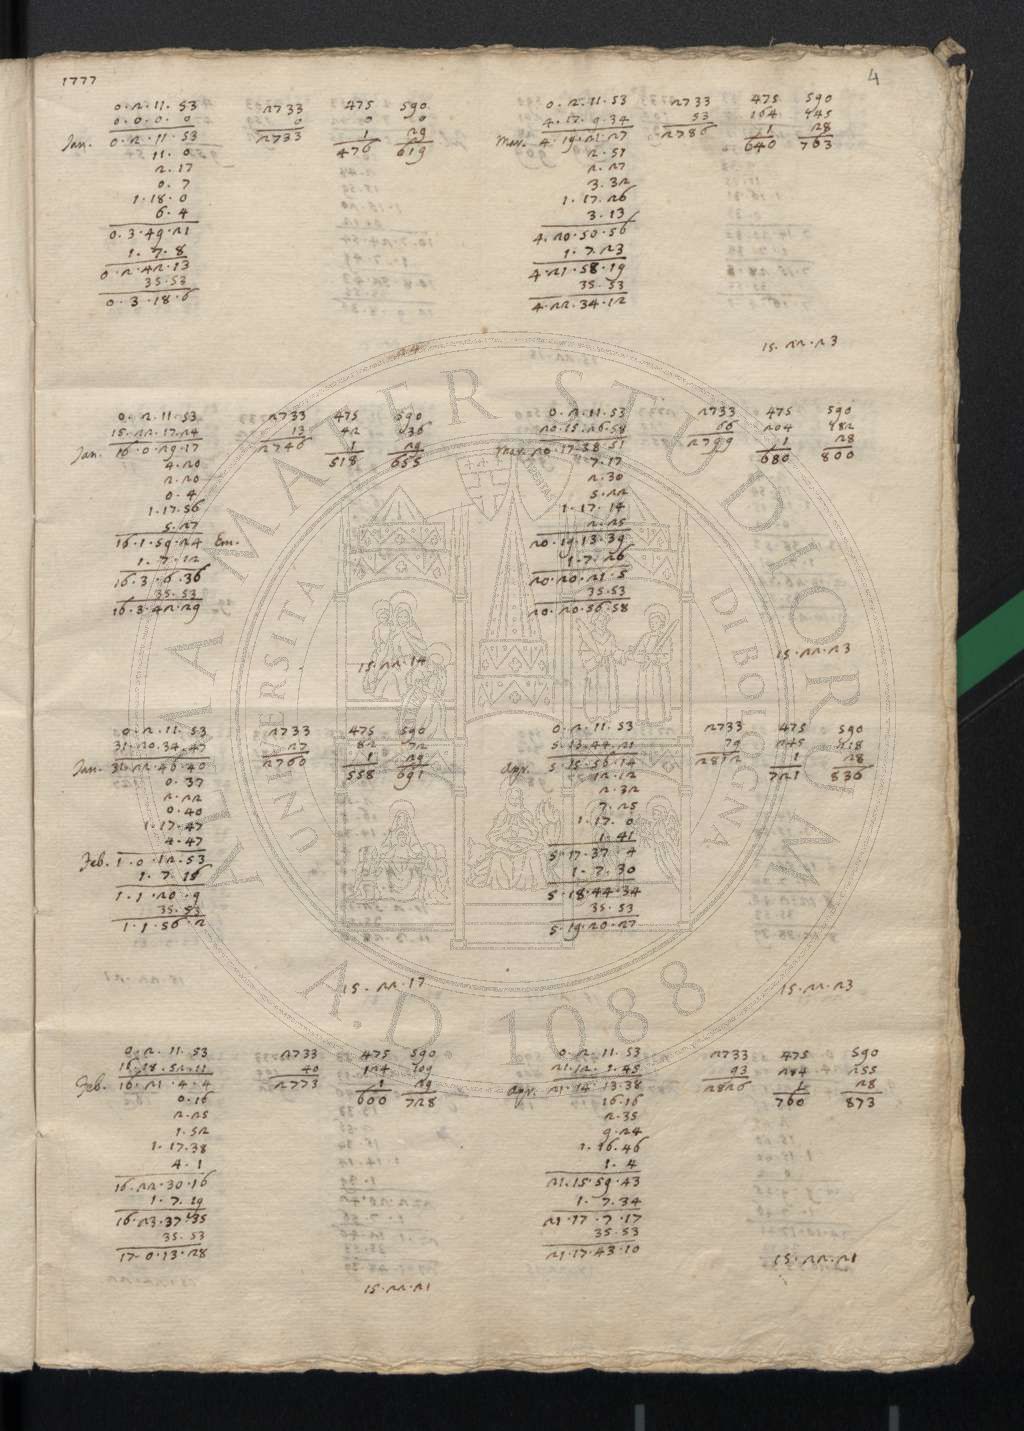 1777
4
0.2.11.53 2733 475 590
0.0.0.0 0 0 0
Jan. 0.2.11.53 2733 1 29
11.0 476 619
2.17
0.7
1.18.0
6.4
0.3.49.21
1.7.8
0.2.42.13
35.53
0.3.18.6
0.2.11.53 2733 475 590
15.22.17.24 13 42 36
Jan. 16.0.29.17 2746 1 29
4.20 518 655
2.20
0.4
1.17.56
5.27
16.1.59.24 Em.
1.7.12
16.3.6.36
35.53
16.3.42.29
15.22.14
0.2.11.53 2733 475 590
31.20.34.47 27 82 72
Jan. 31.22.46.40 2760 1 29
0.37 558 691
2.22
0.40
1.17.47
4.47
Feb. 1.0.12.53
1.7.16
1.1.20.9
35.53
1.1.56.2
15.22.17
0.2.11.53 2733 475 590
16.18.52.11 40 124 109
Feb. 16.21.4.4 2773 1 29
0.16 600 728
2.25
1.52
1.17.38
4.1
16.22.30.16
1.7.19
16.23.37.35
35.53
17.0.13.28
15.22.21
0.2.11.53 2733 475 590
4.17.9.34 53 164 145
Mar. 4.19.21.27 2786 1 28
2.51 640 763
2.27
3.32
1.17.26
3.13
4.20.50.56
1.7.23
4.21.58.19
35.53
4.22.34.12
15.22.23
0.2.11.53 2733 475 590
20.15.26.58 66 204 182
Mar. 20.17.38.51 2799 1 28
7.17 680 800
2.30
5.22
1.17.14
2.25
20.19.13.39
1.7.26
20.20.21.5
35.53
20.20.56.58
15.22.23
0.2.11.53 2733 475 590
5.13.44.21 79 245 218
Apr. 5.15.56.14 2812 1 28
12.12 721 836
2.32
7.25
1.17.0
1.41
5.17.37.4
1.7.30
5.18.44.34
35.53
5.19.20.27
15.22.23
0.2.11.53 2733 475 590
21.12.1.45 93 284 255
Apr. 21.14.13.38 2826 1 28
16.16 760 873
2.35
9.24
1.16.46
1.4
21.15.59.43
1.7.34
21.17.7.17
35.53
21.17.43.10
15.22.21
ALMA MATER STUDIORUM
A.D. 1088
UNIVERSITA DI BOLOGNA